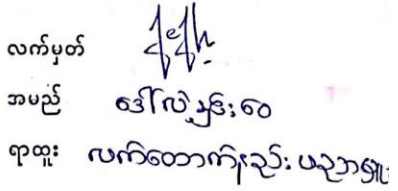 လက်မှတ်
အမည် ဒေါ်လဲ့နှင်းဝေ
ရာထူး လက်ထောက်နည်းပညာမှူး